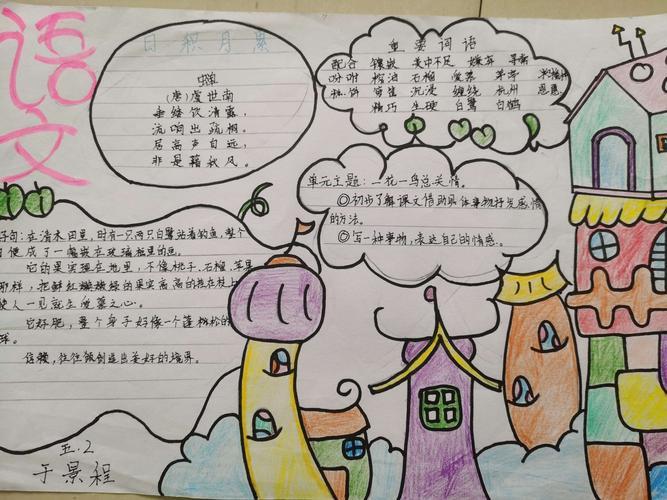 语文
日积月累
蝉
(唐)虞世南
垂緌饮清露,
流响出疏桐。
居高声自远,
非是藉秋风。
重要词语
配合 镶嵌 美中不足 嫌弃 寻常
吩咐 榨油 石榴 爱慕 茅亭
糕饼 寄售 沉浸 缠绕 杭州 恩惠
精巧 生硬 白鹭 白鹤
单元主题:一花一鸟总关情。
◎初步了解课文借助具体事物抒发感情
的方法。
◎写一种事物,表达自己的情感。
好句:在清水田里,时有一只两只白鹭站着钓鱼,整个
便成了一幅嵌在玻璃框里的画。
它的果实埋在地里,不像桃子、石榴、苹果
那样,把鲜红嫩绿的果实高高的挂在枝上
使人一见就生爱慕之心。
它好肥,整个身子好像一个蓬松的
球。
信赖,往往能创造出美好的境界。
五.2
于景程